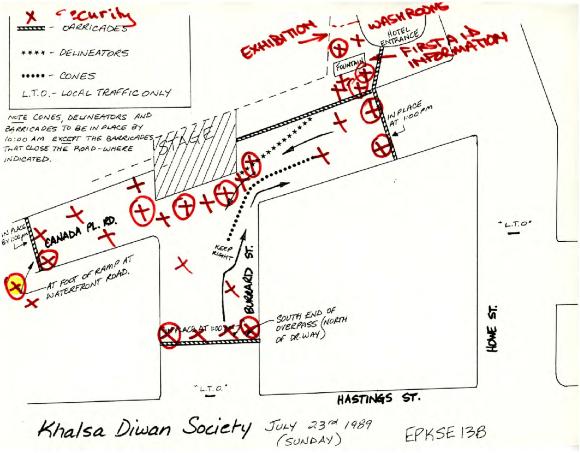 X Security
- BARRICADES
- DELINEATORS
- CONES
L.T.O.- LOCAL TRAFFIC ONLY
NOTE CONES, DELINEATORS AND
BARRICADES TO BE IN PLACE BY
10:00 AM EXCEPT THE BARRICADES
THAT CLOSE THE ROAD-WHERE
INDICATED.
EXHIBITION
WASHROOMS
HOTEL
ENTRANCE
FIRST AID
INFORMATION
FOUNTAIN
IN PLACE
AT 1:00PM
STAGE
IN PLACE
BY 1:00pm
CANADA PL. RD.
KEEP
RIGHT
BURRARD ST.
AT FOOT OF RAMP AT
WATERFRONT ROAD.
"L.T.O"
IN PLACE AT 1:00
SOUTH END OF
OVERPASS (NORTH
OF DR.WAY)
HOWE ST.
"L.T.O."
HASTINGS ST.
Khalsa Diwan Society JULY 23rd 1989
(SUNDAY)
EPKSE13B